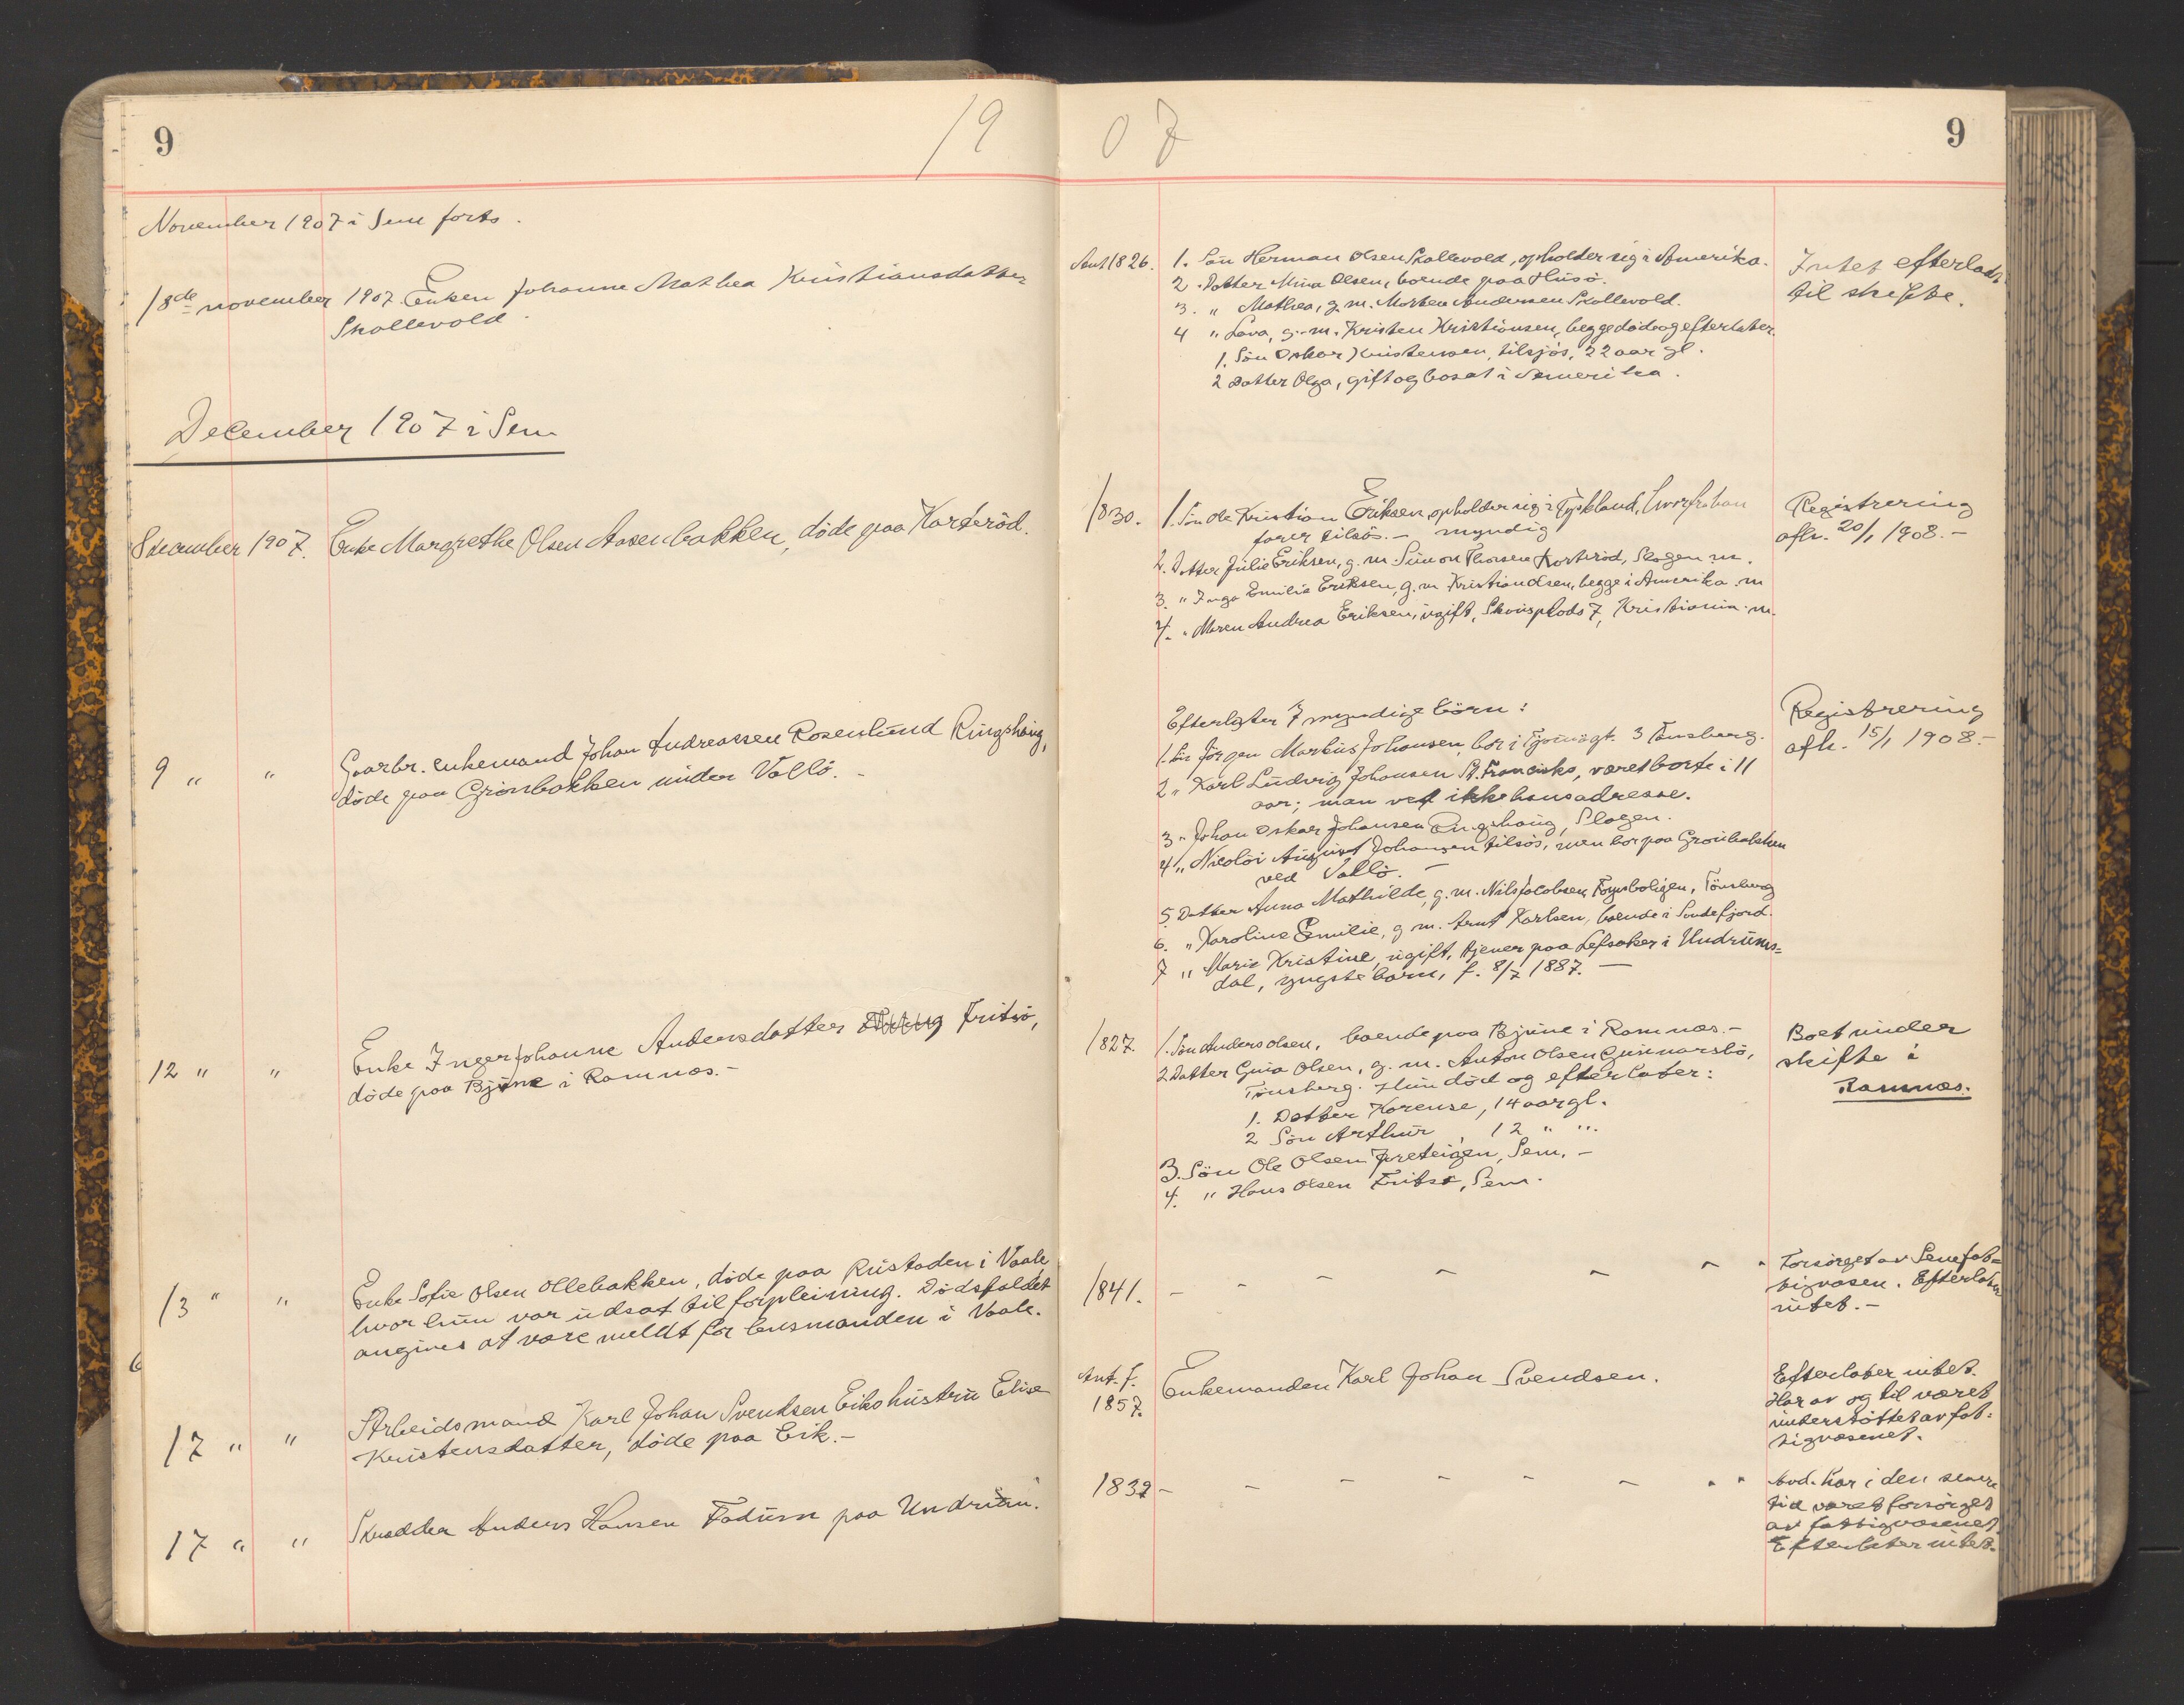 9
19
November 1907 i Sem forts.
18de november 1907. Enken Johanne Mathea Kristiansdatter
Skallevold.
December 1907 i Sem
8 december 1907. Enke Margrethe Olsen Aasenbakken, döde paa Karteröd.
9 " " Gaarbr. enkemand Johan Andreassen Rosenlund Ringshaug,
döde paa Grönbakken under Vallö. -
12 " " Enke Inger Johanne Andersdatter Fritsö,
döde paa Bjune i Ramnæs. -
13 " " Enke Sofie Olsen Ollebakken, döde paa Rustaden i Vaale,
hvor hun var udsat til forpleining. Dödsfaldet
angives at være meldt for lensmanden i Vaale.
17 " " Arbeidsmand Karl Johan Svendsen Eiks hustru Elise
Kristensdatter, döde paa Eik. -
17 " " Skrædder Anders Hansen Fadum paa Undrum.
07
9
Ant 1826. 1. Sön Herman Olsen Skallevold, opholder sig i Amerika.
2. Datter Mina Olsen, boende paa Husö.
3. " Mathea, g. m. Morten Andersen Skallevold.
4 " Lava, g. m. Kristen Kristiansen, begge döde og efterlater:
1. Sön Oskar Kristensen, tilsjös, 22 aar gl.
2 Datter Olga, gift og bosat i Amerika.
Intet efterladt
til skifte.
1830. 1. Sön Ole Kristian Eriksen opholder sig i Tyskland, hvorfra han
farer tilsös. - myndig
2. Datter Julie Eriksen, g. m. Simon Thorsen Karteröd, Slagen m.
3. " Inga Emilie Eriksen, g. m. Kristian Olsen, begge i Amerika. m
4. " Maren Andrea Eriksen, ugift, Skousplads 7, Kristiania. m.
Registrering
afh. 20/1 1908. -
Efterlater 7 myndige börn:
1. Sön Jörgen Markus Johansen, bor i gt. 3 Tönsberg.
2 " Karl Ludvig Johansen St. Francisko, været borte i 11
aar; man vet ikke hans adresse.
3 " Johan Oskar Johansen Ringshaug, Slagen.
4 " Nicolai August Johansen tilsös, men bor paa Grönbakken
ved Vallö. -
5. Datter Anna Mathilde, g. m. Nils Jacobsen, Töynboligen, Tönsberg
6. " Karoline Emilie, g. m. Arnt Karlsen, boende i Sandefjord.
7 " Marie Kristine, ugift, tjener paa Lefsaker i Undrums=
dal, yngste barn, f. 8/7 1887. -
Registrering
afh. 15/1 1908. -
1827. 1. Sön Anders Olsen, boende paa Bjune i Ramnæs. -
2 Datter Olsen, g. m. Anton Olsen Gunnarsbö,
Tönsberg. Hun död og efterlater:
1. Datter Karense, 14 aar gl.
2 Sön Arthur, 12 " "
3. Sön Ole Olsen Jareteigen, Sem. -
4. " Hans Olsen Fritsö, Sem.
Boet under
skifte i
Ramnæs.
1841. - - - - - - " Forsörget av Sem fat=
tigvæsen. Efterlater
intet. -
Ant. f.
1857. Enkemanden Karl Johan Svendsen.
Efterlater intet.
Har av og til været
understöttet av fat=
tigvæsenet.
1832 - - - - - - " " Avd. har i den senere
tid været forsörget
av fattigvæsenet.
Efterlater intet.